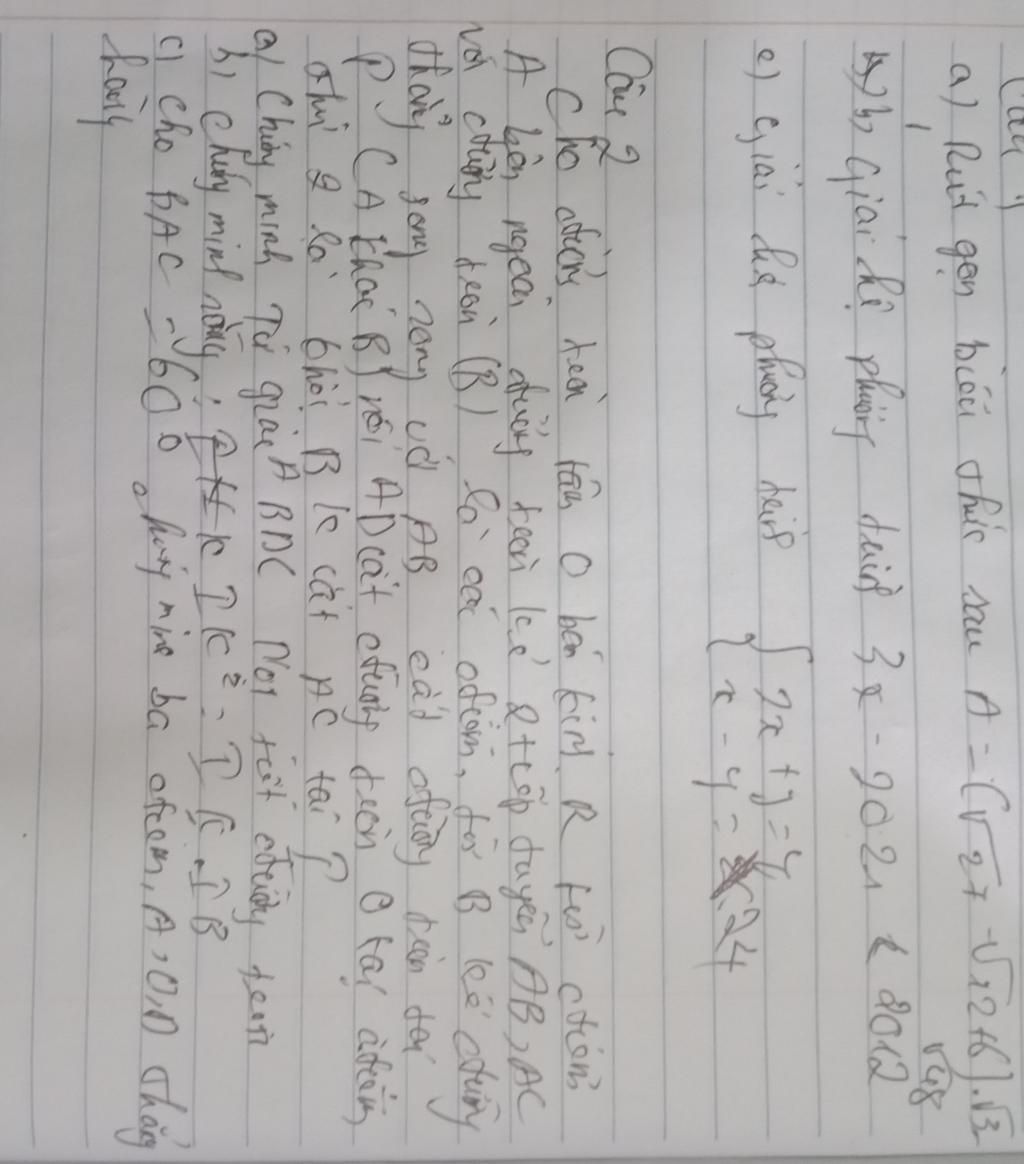 Câu 1
a) Rút gọn biểu thức sau A = (√27 - √12 + 6).√3
√48
b) Giải hệ phường trình 3x - 2021 < 2012
c) Giải hệ phường trình { 2x + y = 4
x - y = 24
Câu 2
Cho đường tròn tâm O bán kính R từ điểm
A bên ngoài đường tròn kẻ 2 tiếp tuyến AB, AC
với đường tròn (B) là các điểm, từ B kẻ đường
thẳng song song với AB cắt đường tròn tại
P ( A khác B) nối AD cắt đường tròn O tại điểm
thứ 2 là khởi B K cắt AC tại I
a) Chứng minh Tứ giác ABDC Nội tiết đường tròn
b) Chứng minh rằng, IK² = IK.IB
c) cho BAC = 60 o chứng minh ba điểm, A, O, D thẳng
hàng